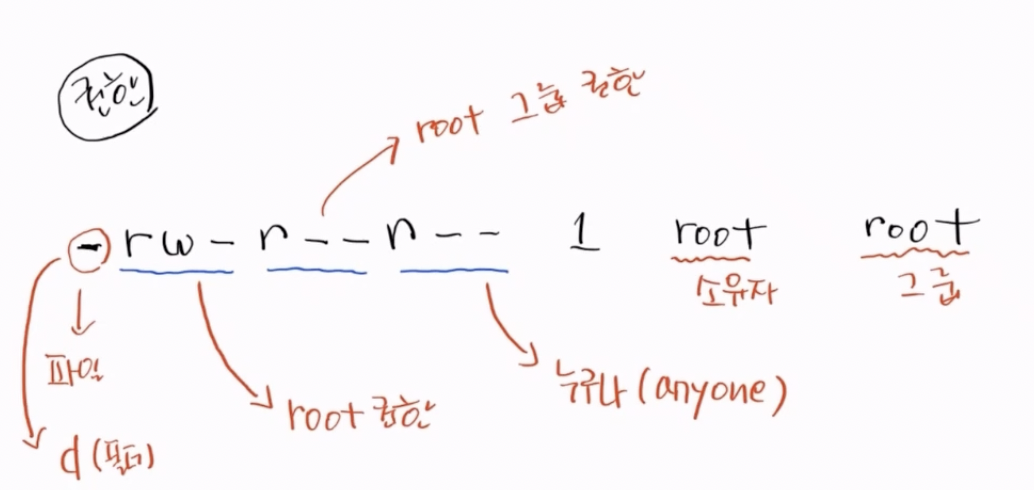 권한
root 그룹 권한
- rw- r-- r-- 1 root root
소유자 그룹
파일
누구나 (anyone)
root 권한
d (폴더)